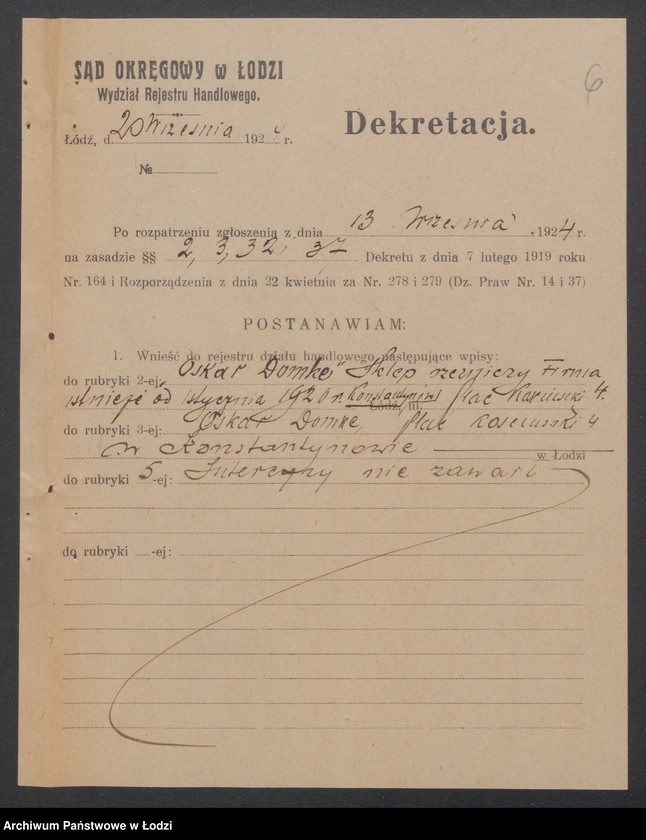 SĄD OKRĘGOWY w ŁODZI
Wydział Rejestru Handlowego.
6
Łódź, d. 20 Września 1924 r.
Dekretacja.
№
Po rozpatrzeniu zgłoszenia z dnia 13 Września 1924 r.
na zasadzie §§ 2, 3, 32 i 37 Dekretu z dnia 7 lutego 1919 roku
Nr. 164 i Rozporządzenia z dnia 22 kwietnia za Nr. 278 i 279 (Dz. Praw Nr. 14 i 37)
POSTANAWIAM:
1. Wnieść do rejestru działu handlowego następujące wpisy:
do rubryki 2-ej: Oskar Domke" Sklep rzeźniczy Firma
istnieje od stycznia 1920 r. Konstantynów Plac Kościuszki 4.
Łódź, ul.
do rubryki 3-ej: Oskar Domke, Plac Kościuszki 4
w Konstantynowie
w Łodzi
do rubryki 5-ej: Intercyzy nie zawarł
do rubryki -ej:
Archiwum Państwowe w Łodzi